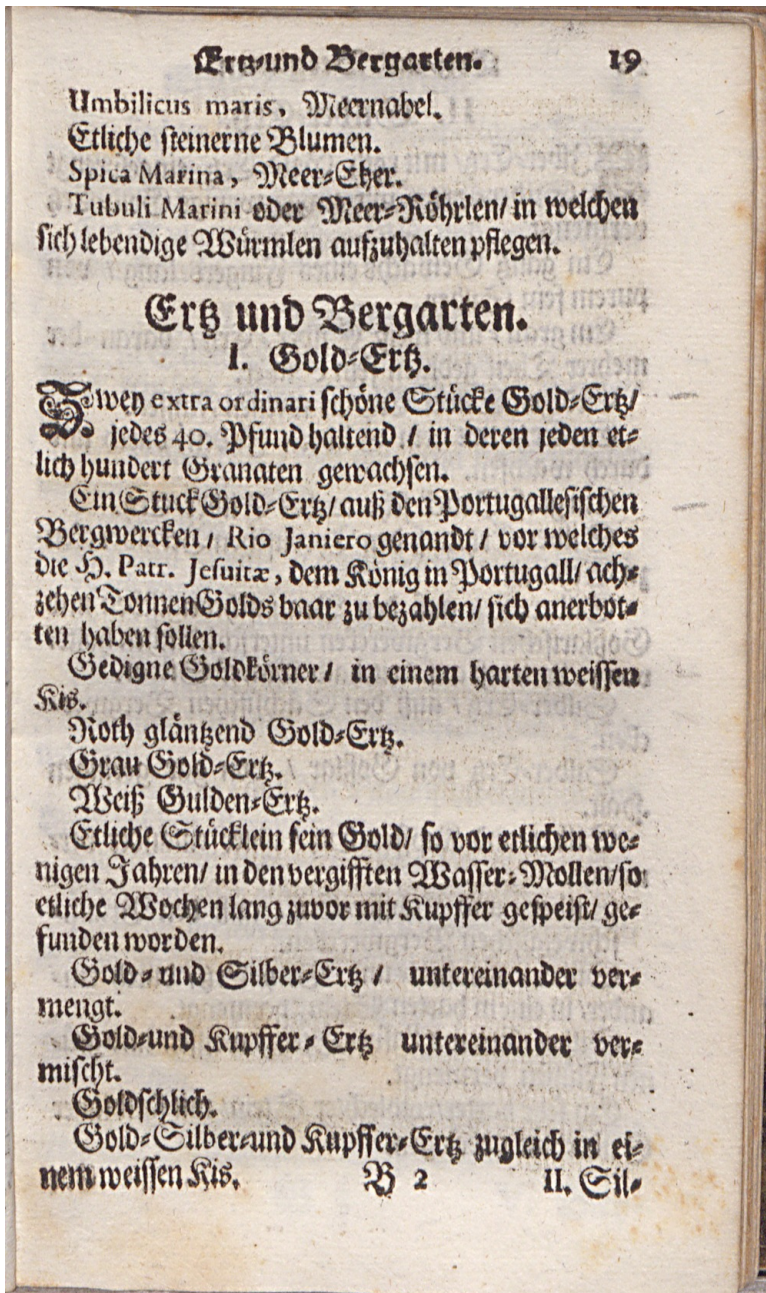 Ertz-und Bergarten. 19
Umbilicus maris, Meernabel.
Etliche steinerne Blumen.
Spica Marina, Meer-Eher.
Tubuli Marini oder Meer-Röhrlen/ in welchen
sich lebendige Würmlen aufzuhalten pflegen.
Ertz und Bergarten.
I. Gold-Ertz.
Zwey extra ordinari schöne Stücke Gold-Ertz/
jedes 40. Pfund haltend / in deren jeden et-
lich hundert Granaten gewachsen.
Ein Stuck Gold-Ertz/ auß den Portugallesischen
Bergwercken / Rio Janiero genandt / vor welches
die H. Patr. Jesuitæ, dem König in Portugall/ ach-
zehen Tonnen Golds baar zu bezahlen/ sich anerbot-
ten haben sollen.
Gedigne Goldkörner / in einem harten weissen
Kis.
Roth gläntzend Gold-Ertz.
Grau Gold-Ertz.
Weiß Gulden-Ertz.
Etliche Stücklein fein Gold/ so vor etlichen we-
nigen Jahren/ in den vergifften Wasser-Mollen/ so
etliche Wochen lang zuvor mit Kupffer gespeist/ ge-
funden worden.
Gold-und Silber-Ertz / untereinander ver-
mengt.
Gold-und Kupffer-Ertz untereinander ver-
mischt.
Goldschlich.
Gold-Silber-und Kupffer-Ertz zugleich in ei-
nem weissen Kis. B 2 II. Sil-